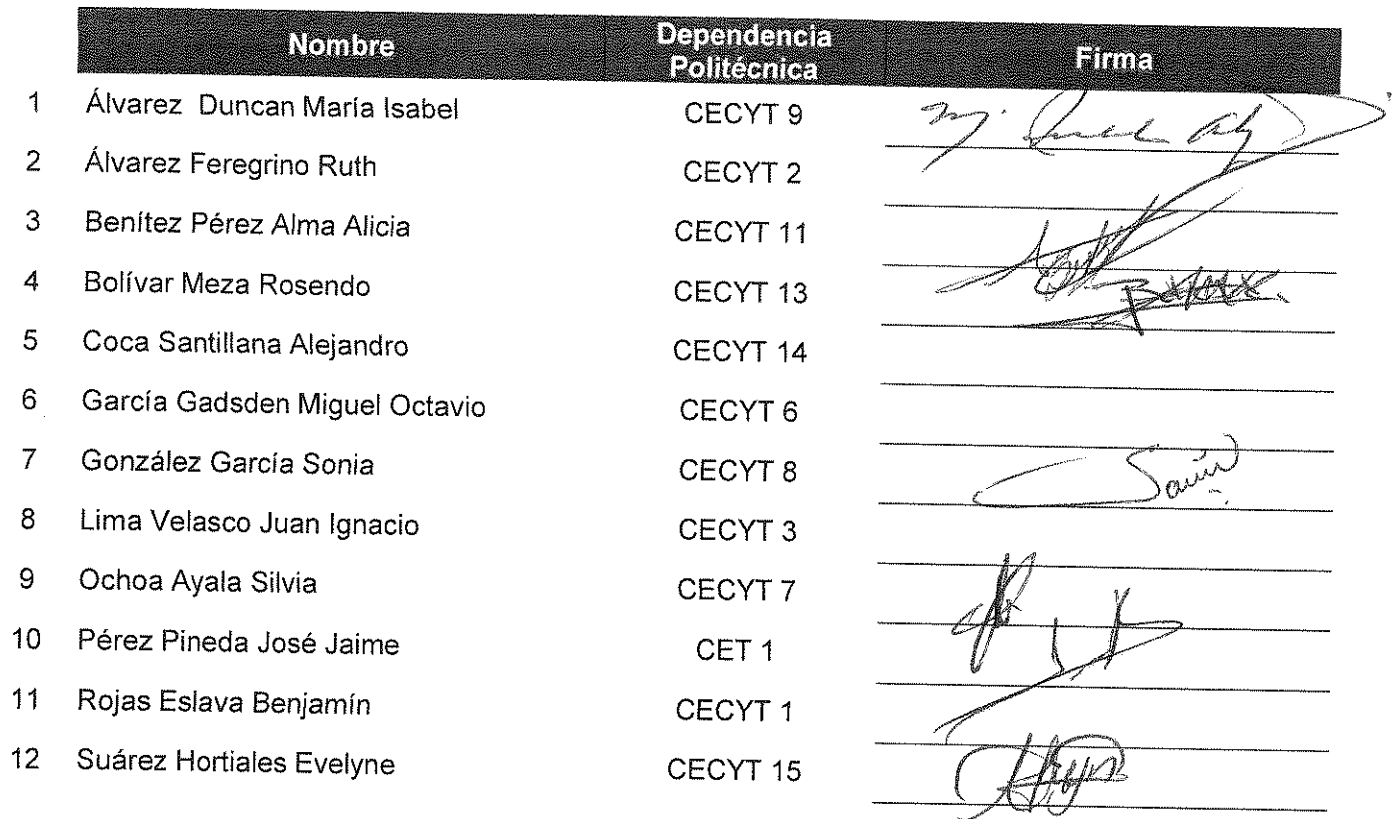 Nombre Dependencia Politécnica Firma
1 Álvarez Duncan María Isabel CECYT 9
2 Álvarez Feregrino Ruth CECYT 2
3 Benítez Pérez Alma Alicia CECYT 11
4 Bolívar Meza Rosendo CECYT 13
5 Coca Santillana Alejandro CECYT 14
6 García Gadsden Miguel Octavio CECYT 6
7 González García Sonia CECYT 8
8 Lima Velasco Juan Ignacio CECYT 3
9 Ochoa Ayala Silvia CECYT 7
10 Pérez Pineda José Jaime CET 1
11 Rojas Eslava Benjamín CECYT 1
12 Suárez Hortiales Evelyne CECYT 15